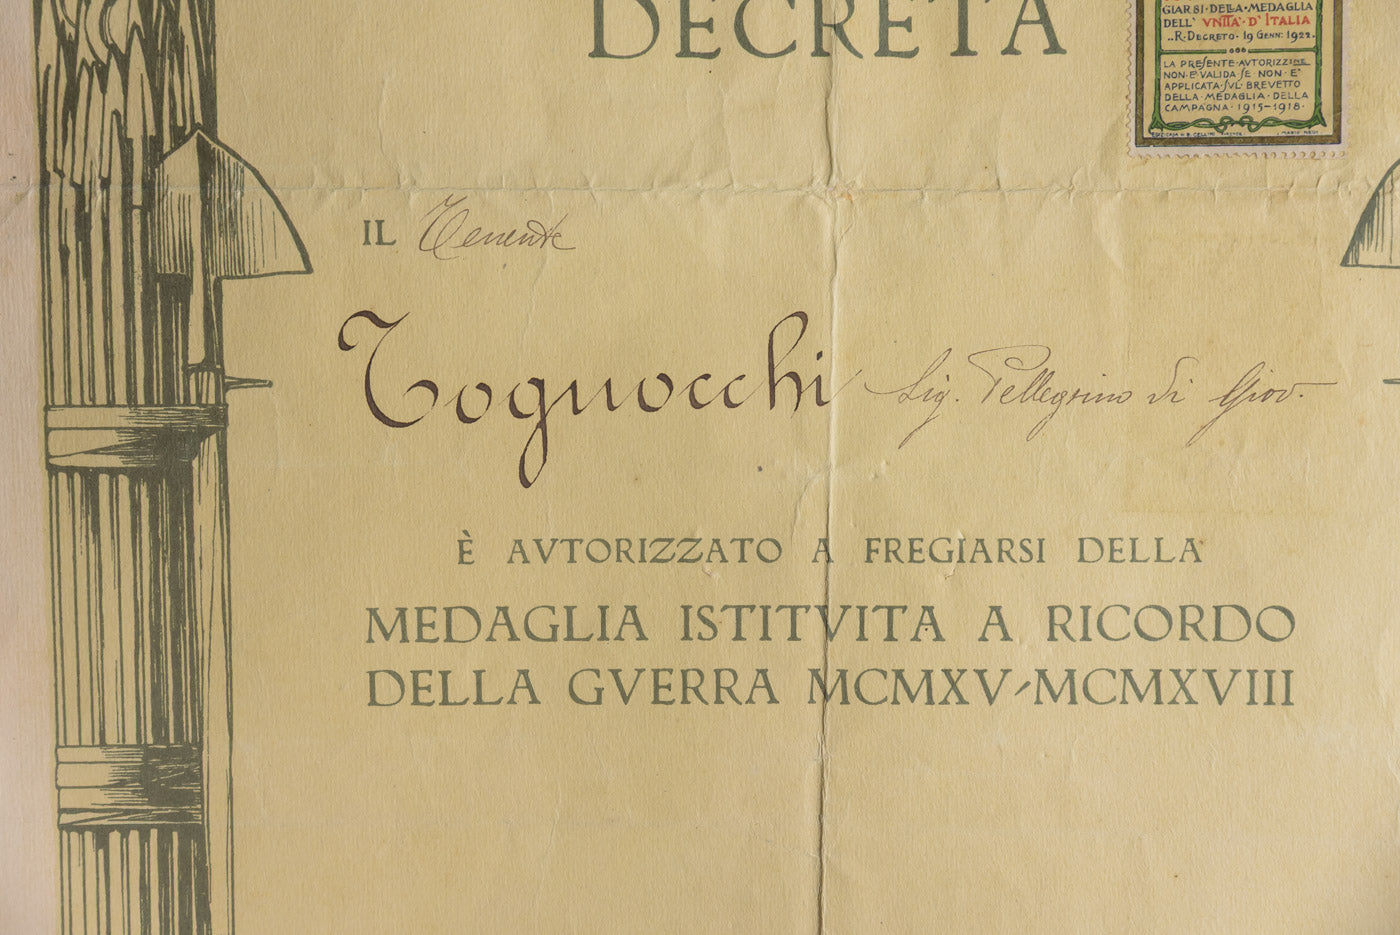 DECRETA
GIARSI·DELLA·MEDAGLIA
DELL' VNITA' D'ITALIA
..R·DECRETO·19 GENN: 1922..
LA PRESENTE·AVTORIZZINE
NON·E' VALIDA·SE NON·E'
APPLICATA·SVL·BREVETTO
DELLA·MEDAGLIA·DELLA
CAMPAGNA·1915-1918·
IL Tenente
Tognocchi Sig. Pellegrino di Giov.
È AVTORIZZATO A FREGIARSI DELLA
MEDAGLIA ISTITVITA A RICORDO
DELLA GVERRA MCMXV-MCMXVIII